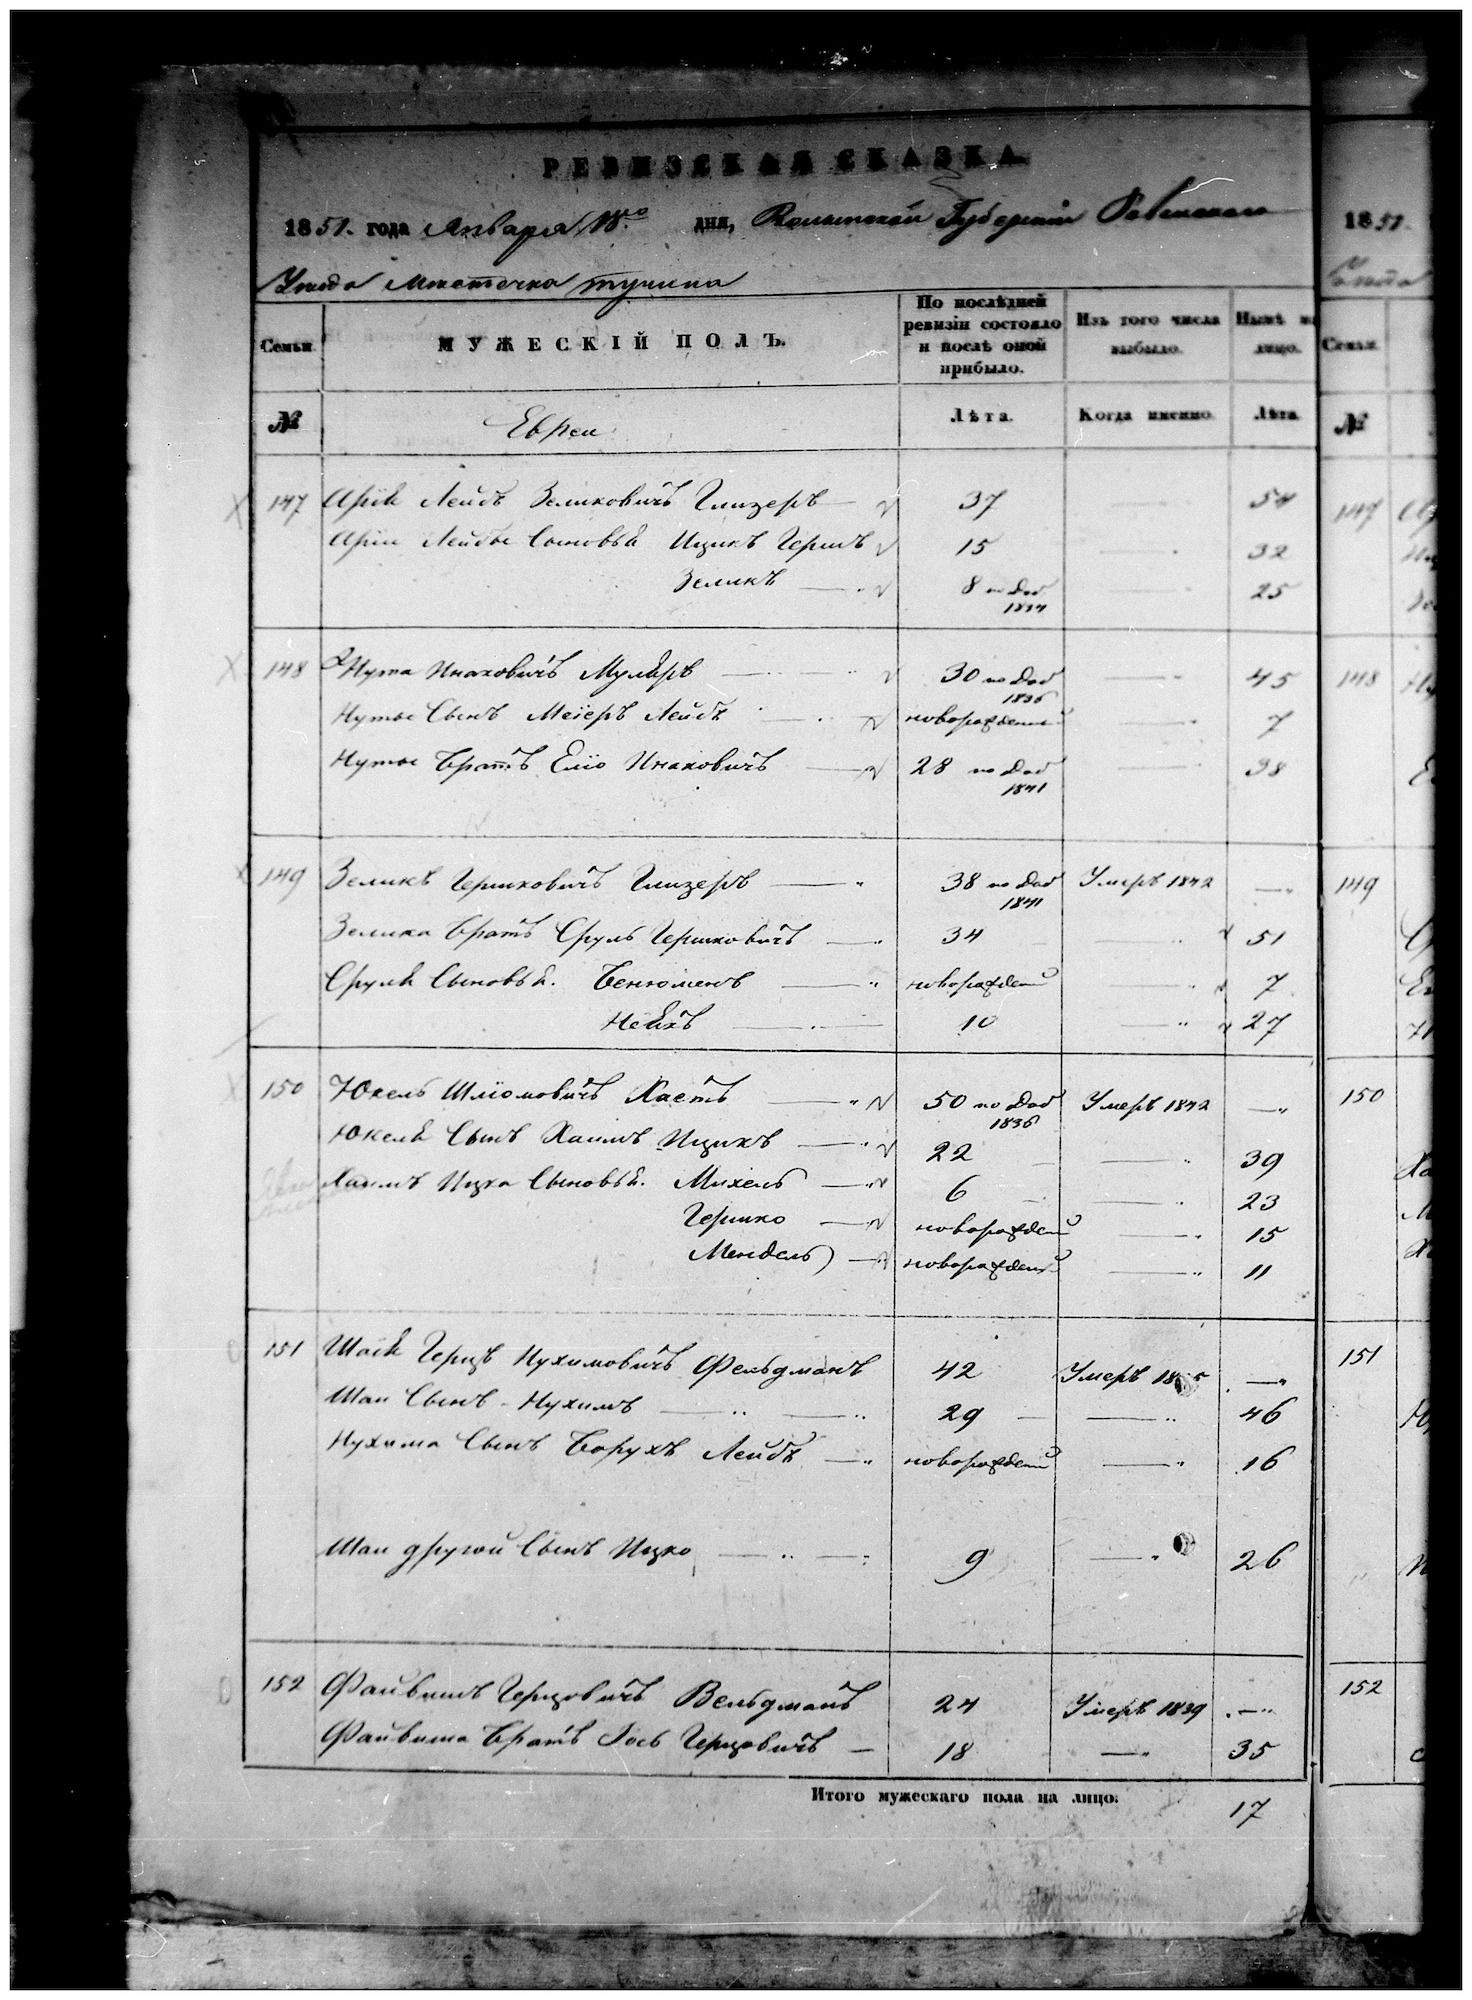 РЕВИЗСКАЯ СКАЗКА.
1851. года Января 18го дня, Волынской Губернии Ровенскаго
Уезда Местечка Тучина
Семьи МУЖЕСКІЙ ПОЛЪ. По послѣдней ревизіи состояло и послѣ оной прибыло. Изъ того числа выбыло. Нынѣ на лицо.
№ Евреи Лѣта. Когда именно. Лѣта
147 Арія Лейбъ Зеликовичъ Глизеръ 37 54
Аріи Лейбы Сыновья Ицикъ Гершъ 15 32
Зеликъ 8 по доб 1834 25
148 Нута Инаховичъ Мулеръ 30 по доб 1836 45
Нуты Сынъ Меіеръ Лейбъ новорожденный 7
Нуты Братъ Еліо Инаховичъ 28 по доб 1841 38
149 Зеликъ Гершковичъ Глизеръ 38 по доб 1841 Умеръ 1842
Зелика Братъ Сруль Гершковичъ 34 51
Сруля Сыновья. Бенюменъ новорожден 7
10 27
150 Юкель Шліомовичъ 50 по доб 1836 Умеръ 1842
Юкеля Сынъ Хаимъ Ицикъ 22 39
Хаимъ Ицка Сыновья. Михель 6 23
Гершко новорожден 15
Мендель новорожден 11
151 Шая Герцъ Нухимовичъ Фельдманъ 42 Умеръ
Шаи Сынъ Нухимъ 29 46
Нухима Сынъ Борухъ Лейбъ новорожден 16
Шаи другой Сынъ Ицко 9 26
152 Файвишъ Герцовичъ Вельдманъ 24 Умеръ 1839
Файвиша Братъ Іось Герцовичъ 18 35
Итого мужескаго пола на лицо: 17
1851.
Уезда
Семьи
№
147
148
149
150
151
152